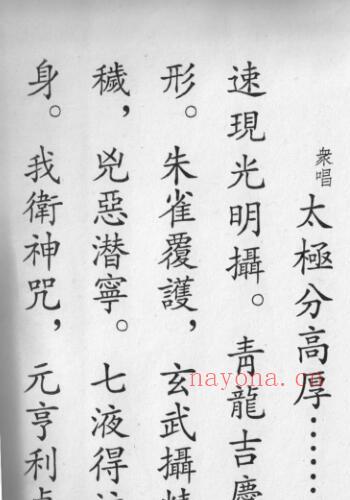 衆唱 太極分高厚……
速現光明攝。青龍吉慶
形。朱雀覆護，玄武攝
穢，兇惡潜寧。七液得
身。我衛神咒，元亨利
nayona.cn